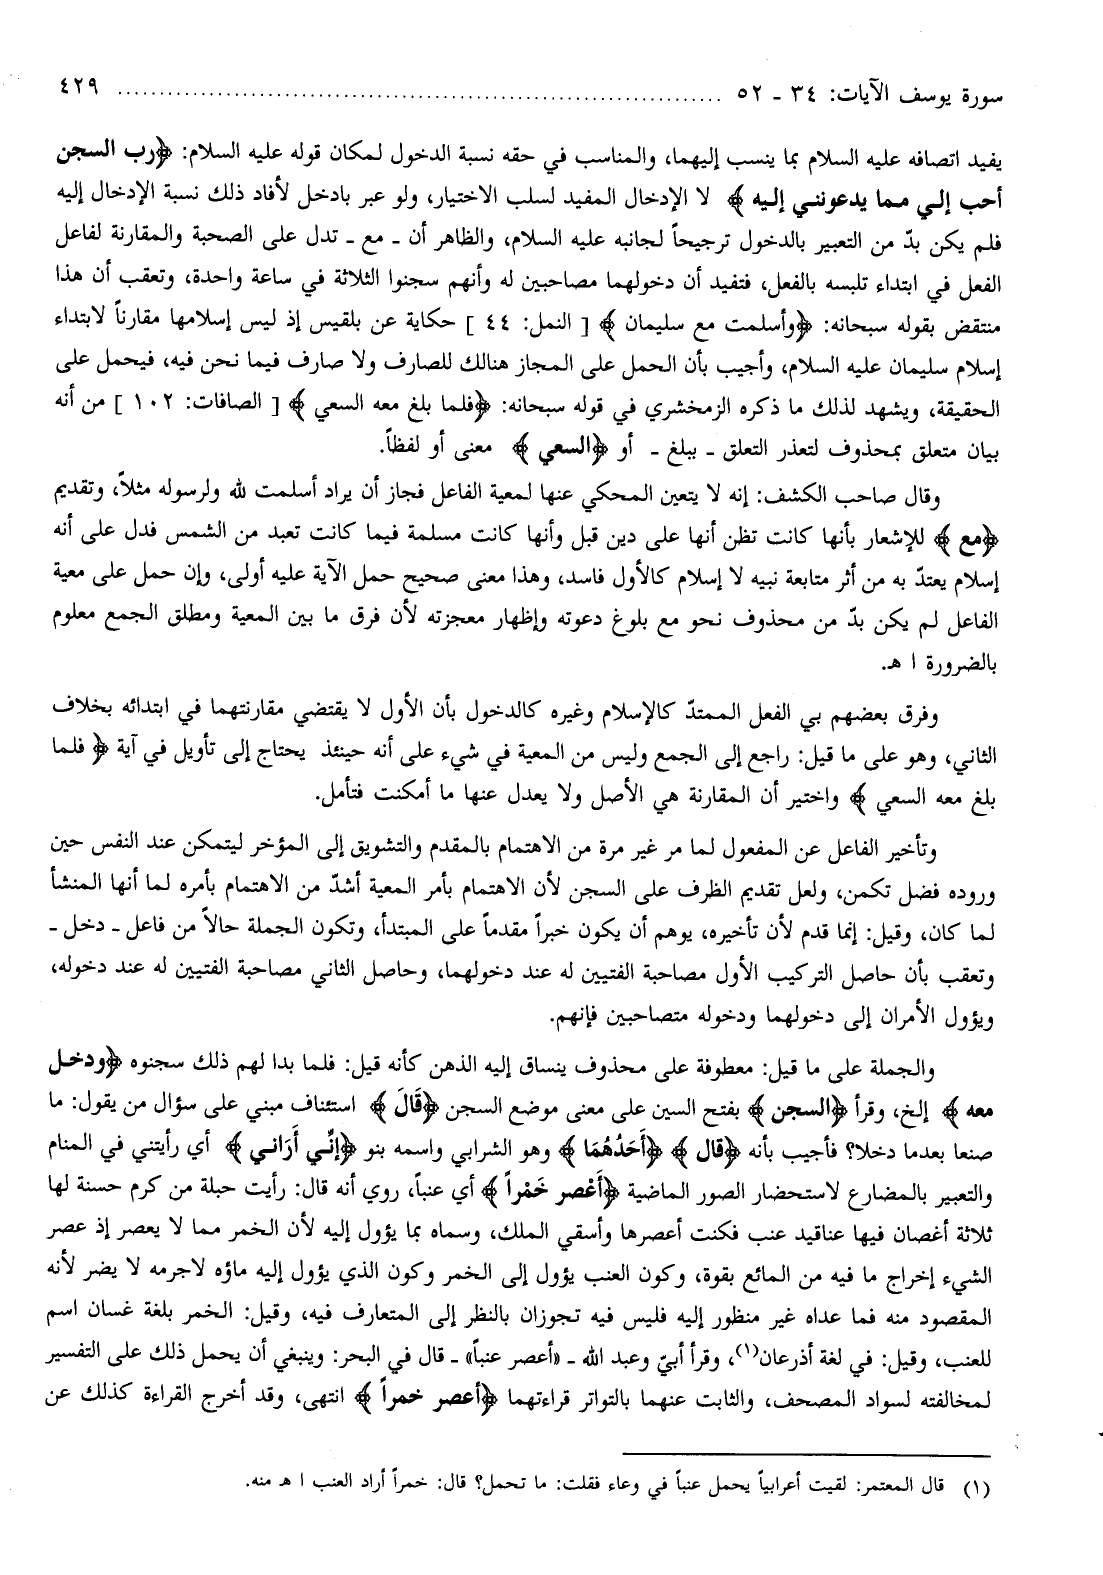 سورة يوسف الآيات: ٣٤ ـ ٥٢ ........................................................................................ ٤٢٩
يفيد اتصافه عليه السلام بما ينسب إليهما، والمناسب في حقه نسبة الدخول لمكان قوله عليه السلام: ﴿رب السجن
أحب إلي مما يدعونني إليه﴾ لا الإدخال المفيد لسلب الاختيار، ولو عبر بادخل لأفاد ذلك نسبة الإدخال إليه
فلم يكن بدّ من التعبير بالدخول ترجيحاً لجانبه عليه السلام، والظاهر أن ـ مع ـ تدل على الصحبة والمقارنة لفاعل
الفعل في ابتداء تلبسه بالفعل، فتفيد أن دخولهما مصاحبين له وأنهم سجنوا الثلاثة في ساعة واحدة، وتعقب أن هذا
منتقض بقوله سبحانه: ﴿وأسلمت مع سليمان﴾ [ النمل: ٤٤ ] حكاية عن بلقيس إذ ليس إسلامها مقارناً لابتداء
إسلام سليمان عليه السلام، وأجيب بأن الحمل على المجاز هنالك للصارف ولا صارف فيما نحن فيه، فيحمل على
الحقيقة، ويشهد لذلك ما ذكره الزمخشري في قوله سبحانه: ﴿فلما بلغ معه السعي﴾ [ الصافات: ١٠٢ ] من أنه
بيان متعلق بمحذوف لتعذر التعلق ـ ببلغ ـ أو ﴿السعي﴾ معنى أو لفظاً.
وقال صاحب الكشف: إنه لا يتعين المحكي عنها لمعية الفاعل فجاز أن يراد أسلمت لله ولرسوله مثلاً، وتقديم
﴿مع﴾ للإشعار بأنها كانت تظن أنها على دين قبل وأنها كانت مسلمة فيما كانت تعبد من الشمس فدل على أنه
إسلام يعتدّ به من أثر متابعة نبيه لا إسلام كالأول فاسد، وهذا معنى صحيح حمل الآية عليه أولى، وإن حمل على معية
الفاعل لم يكن بدّ من محذوف نحو مع بلوغ دعوته وإظهار معجزته لأن فرق ما بين المعية ومطلق الجمع معلوم
بالضرورة ا هـ.
وفرق بعضهم بي الفعل الممتدّ كالإسلام وغيره كالدخول بأن الأول لا يقتضي مقارنتهما في ابتدائه بخلاف
الثاني، وهو على ما قيل: راجع إلى الجمع وليس من المعية في شيء على أنه حينئذ يحتاج إلى تأويل في آية ﴿فلما
بلغ معه السعي﴾ واختير أن المقارنة هي الأصل ولا يعدل عنها ما أمكنت فتأمل.
وتأخير الفاعل عن المفعول لما مر غير مرة من الاهتمام بالمقدم والتشويق إلى المؤخر ليتمكن عند النفس حين
وروده فضل تكمن، ولعل تقديم الظرف على السجن لأن الاهتمام بأمر المعية أشدّ من الاهتمام بأمره لما أنها المنشأ
لما كان، وقيل: إنما قدم لأن تأخيره، يوهم أن يكون خبراً مقدماً على المبتدأ، وتكون الجملة حالاً من فاعل ـ دخل ـ
وتعقب بأن حاصل التركيب الأول مصاحبة الفتيين له عند دخولهما، وحاصل الثاني مصاحبة الفتيين له عند دخوله،
ويؤول الأمران إلى دخولهما ودخوله متصاحبين فإنهم.
والجملة على ما قيل: معطوفة على محذوف ينساق إليه الذهن كأنه قيل: فلما بدا لهم ذلك سجنوه ﴿ودخل
معه﴾ إلخ، وقرأ ﴿السجن﴾ بفتح السين على معنى موضع السجن ﴿قَالَ﴾ استئناف مبني على سؤال من يقول: ما
صنعا بعدما دخلا؟ فأجيب بأنه ﴿قال﴾ ﴿أَحَدُهُمَا﴾ وهو الشرابي واسمه بنو ﴿إِنِّي أَرَاني﴾ أي رأيتني في المنام
والتعبير بالمضارع لاستحضار الصور الماضية ﴿أَعْصر خَمْراً﴾ أي عنباً، روي أنه قال: رأيت حبلة من كرم حسنة لها
ثلاثة أغصان فيها عناقيد عنب فكنت أعصرها وأسقي الملك، وسماه بما يؤول إليه لأن الخمر مما لا يعصر إذ عصر
الشيء إخراج ما فيه من المائع بقوة، وكون العنب يؤول إلى الخمر وكون الذي يؤول إليه ماؤه لاجرمه لا يضر لأنه
المقصود منه فما عداه غير منظور إليه فليس فيه تجوزان بالنظر إلى المتعارف فيه، وقيل: الخمر بلغة غسان اسم
للعنب، وقيل: في لغة أذرعان(١)، وقرأ أبيّ وعبد الله ـ «أعصر عنباً» ـ قال في البحر: وينبغي أن يحمل ذلك على التفسير
لمخالفته لسواد المصحف، والثابت عنهما بالتواتر قراءتهما ﴿أعصر خمراً﴾ انتهى، وقد أخرج القراءة كذلك عن
(١) قال المعتمر: لقيت أعرابياً يحمل عنباً في وعاء فقلت: ما تحمل؟ قال: خمراً أراد العنب ا هـ منه.